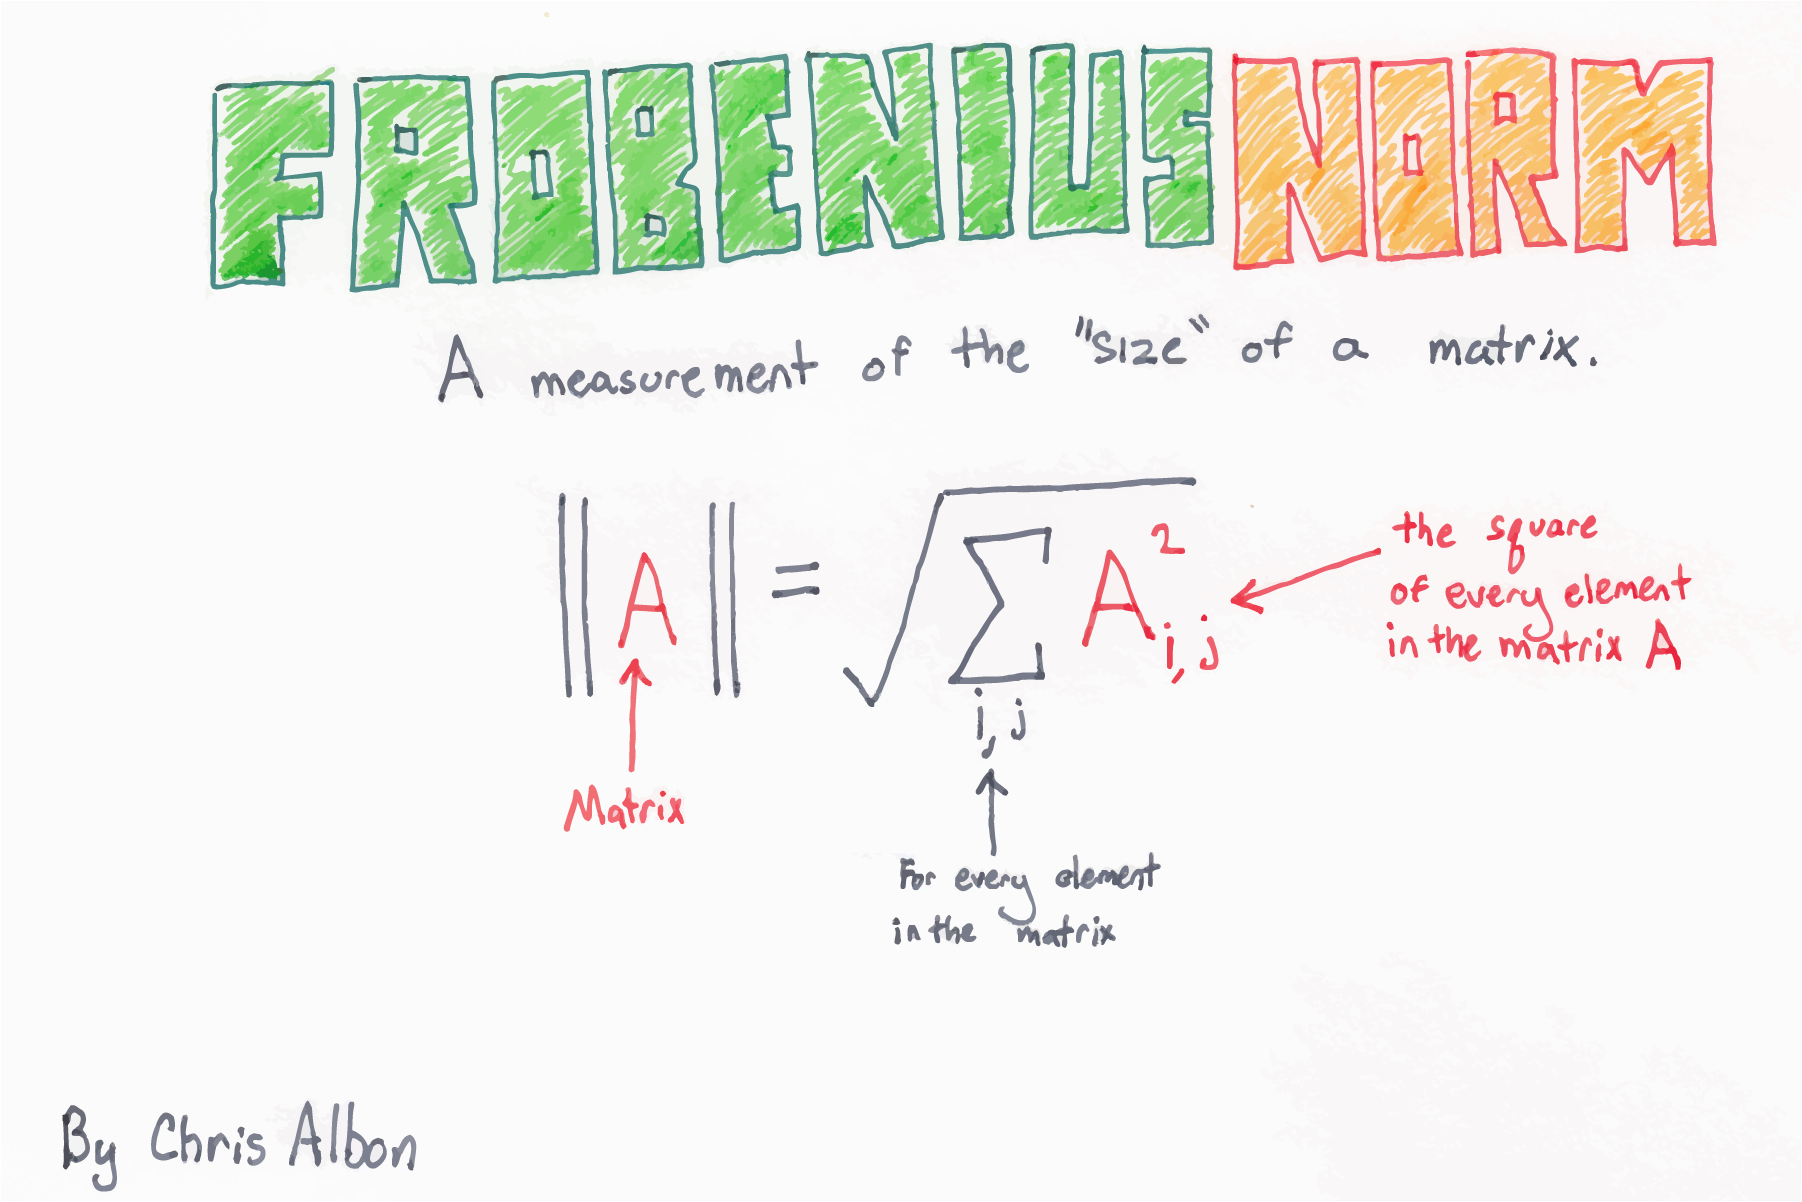 FROBENIUS NORM
A measurement of the "size" of a matrix.
‖A‖ = √∑ A²i,j
i, j
the square
of every element
in the matrix A
Matrix
For every element
in the matrix
By Chris Albon